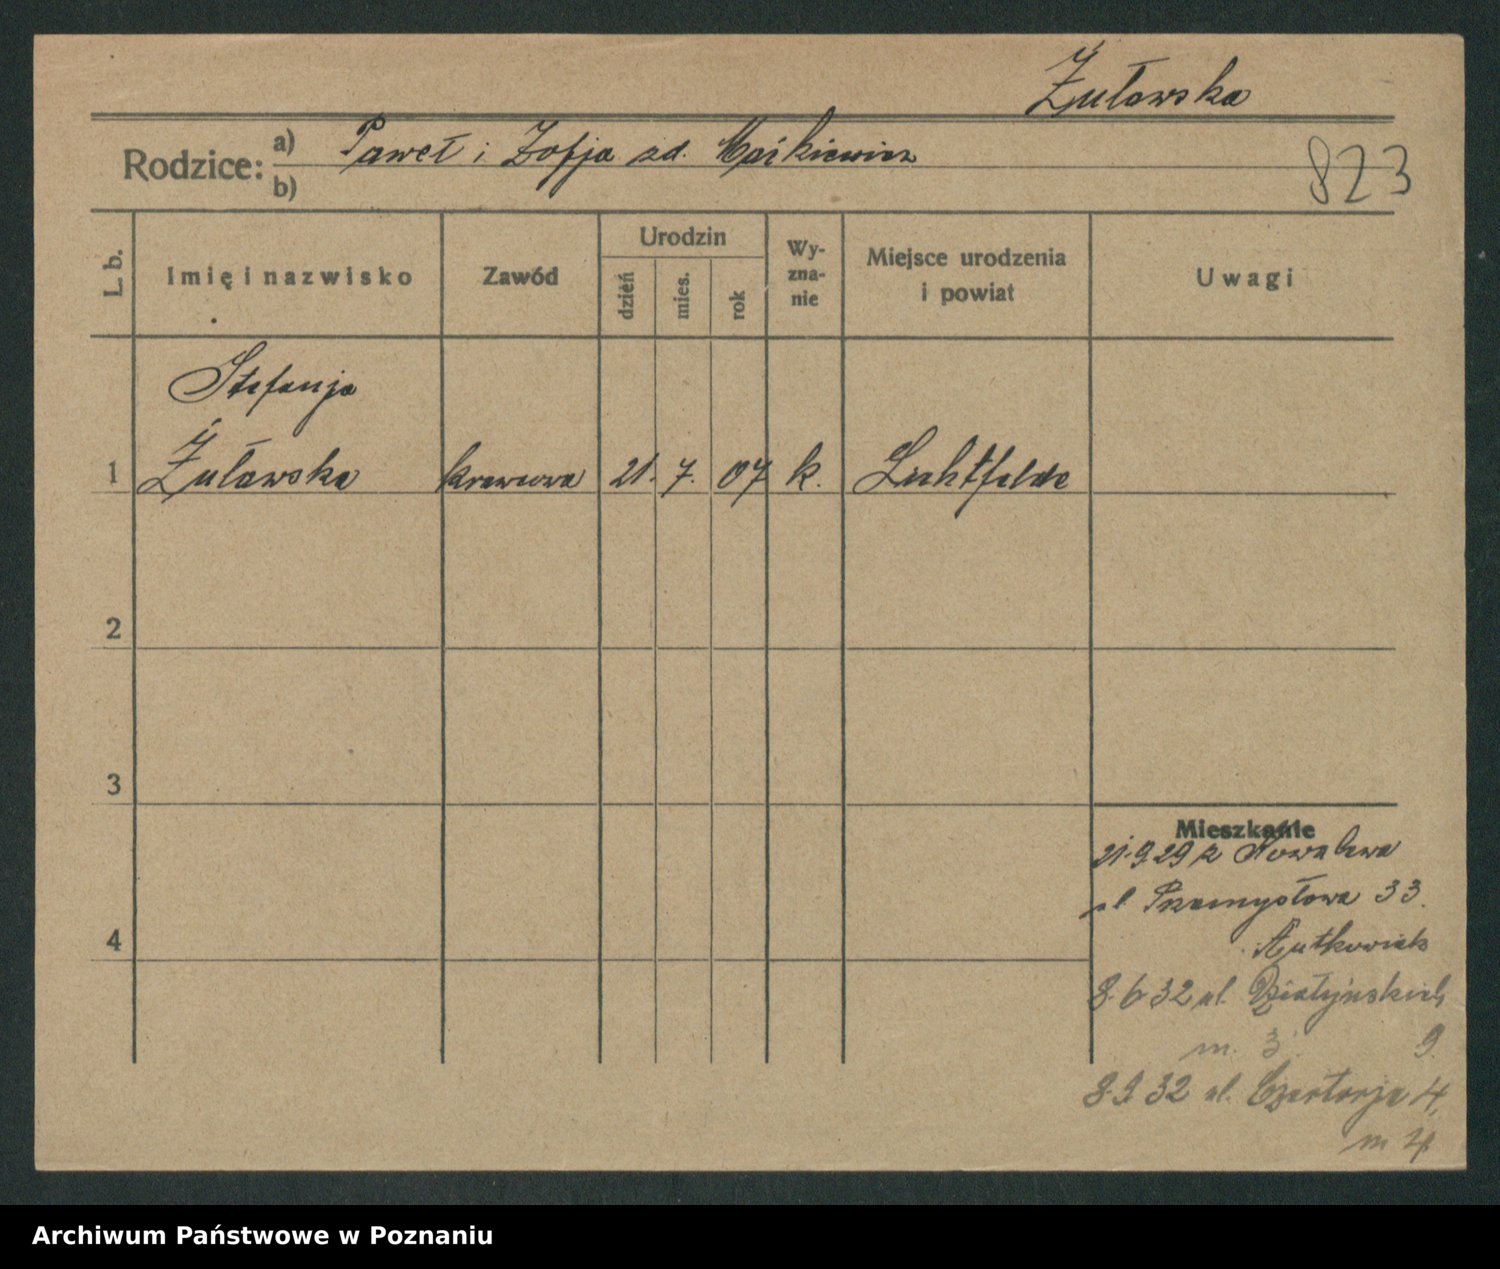 Żuławska
Rodzice: a) Paweł i Zofja zd. Maćkiewicz
b)
823
L. b.
Imię i nazwisko
Zawód
Urodzin
dzień
mies.
rok
Wy-
zna-
nie
Miejsce urodzenia
i powiat
Uwagi
Stefanja
1 Żuławska krawcowa 21. 7. 07 k. Lichtfelde
2
3
4
Mieszkanie
21.9.29 z Kowalewa
ul. Przemysłowa 33.
8.6.32 ul. Działyńskich
m. 3. 9.
8.9.32 ul. Czartorja 4,
m 4
Archiwum Państwowe w Poznaniu